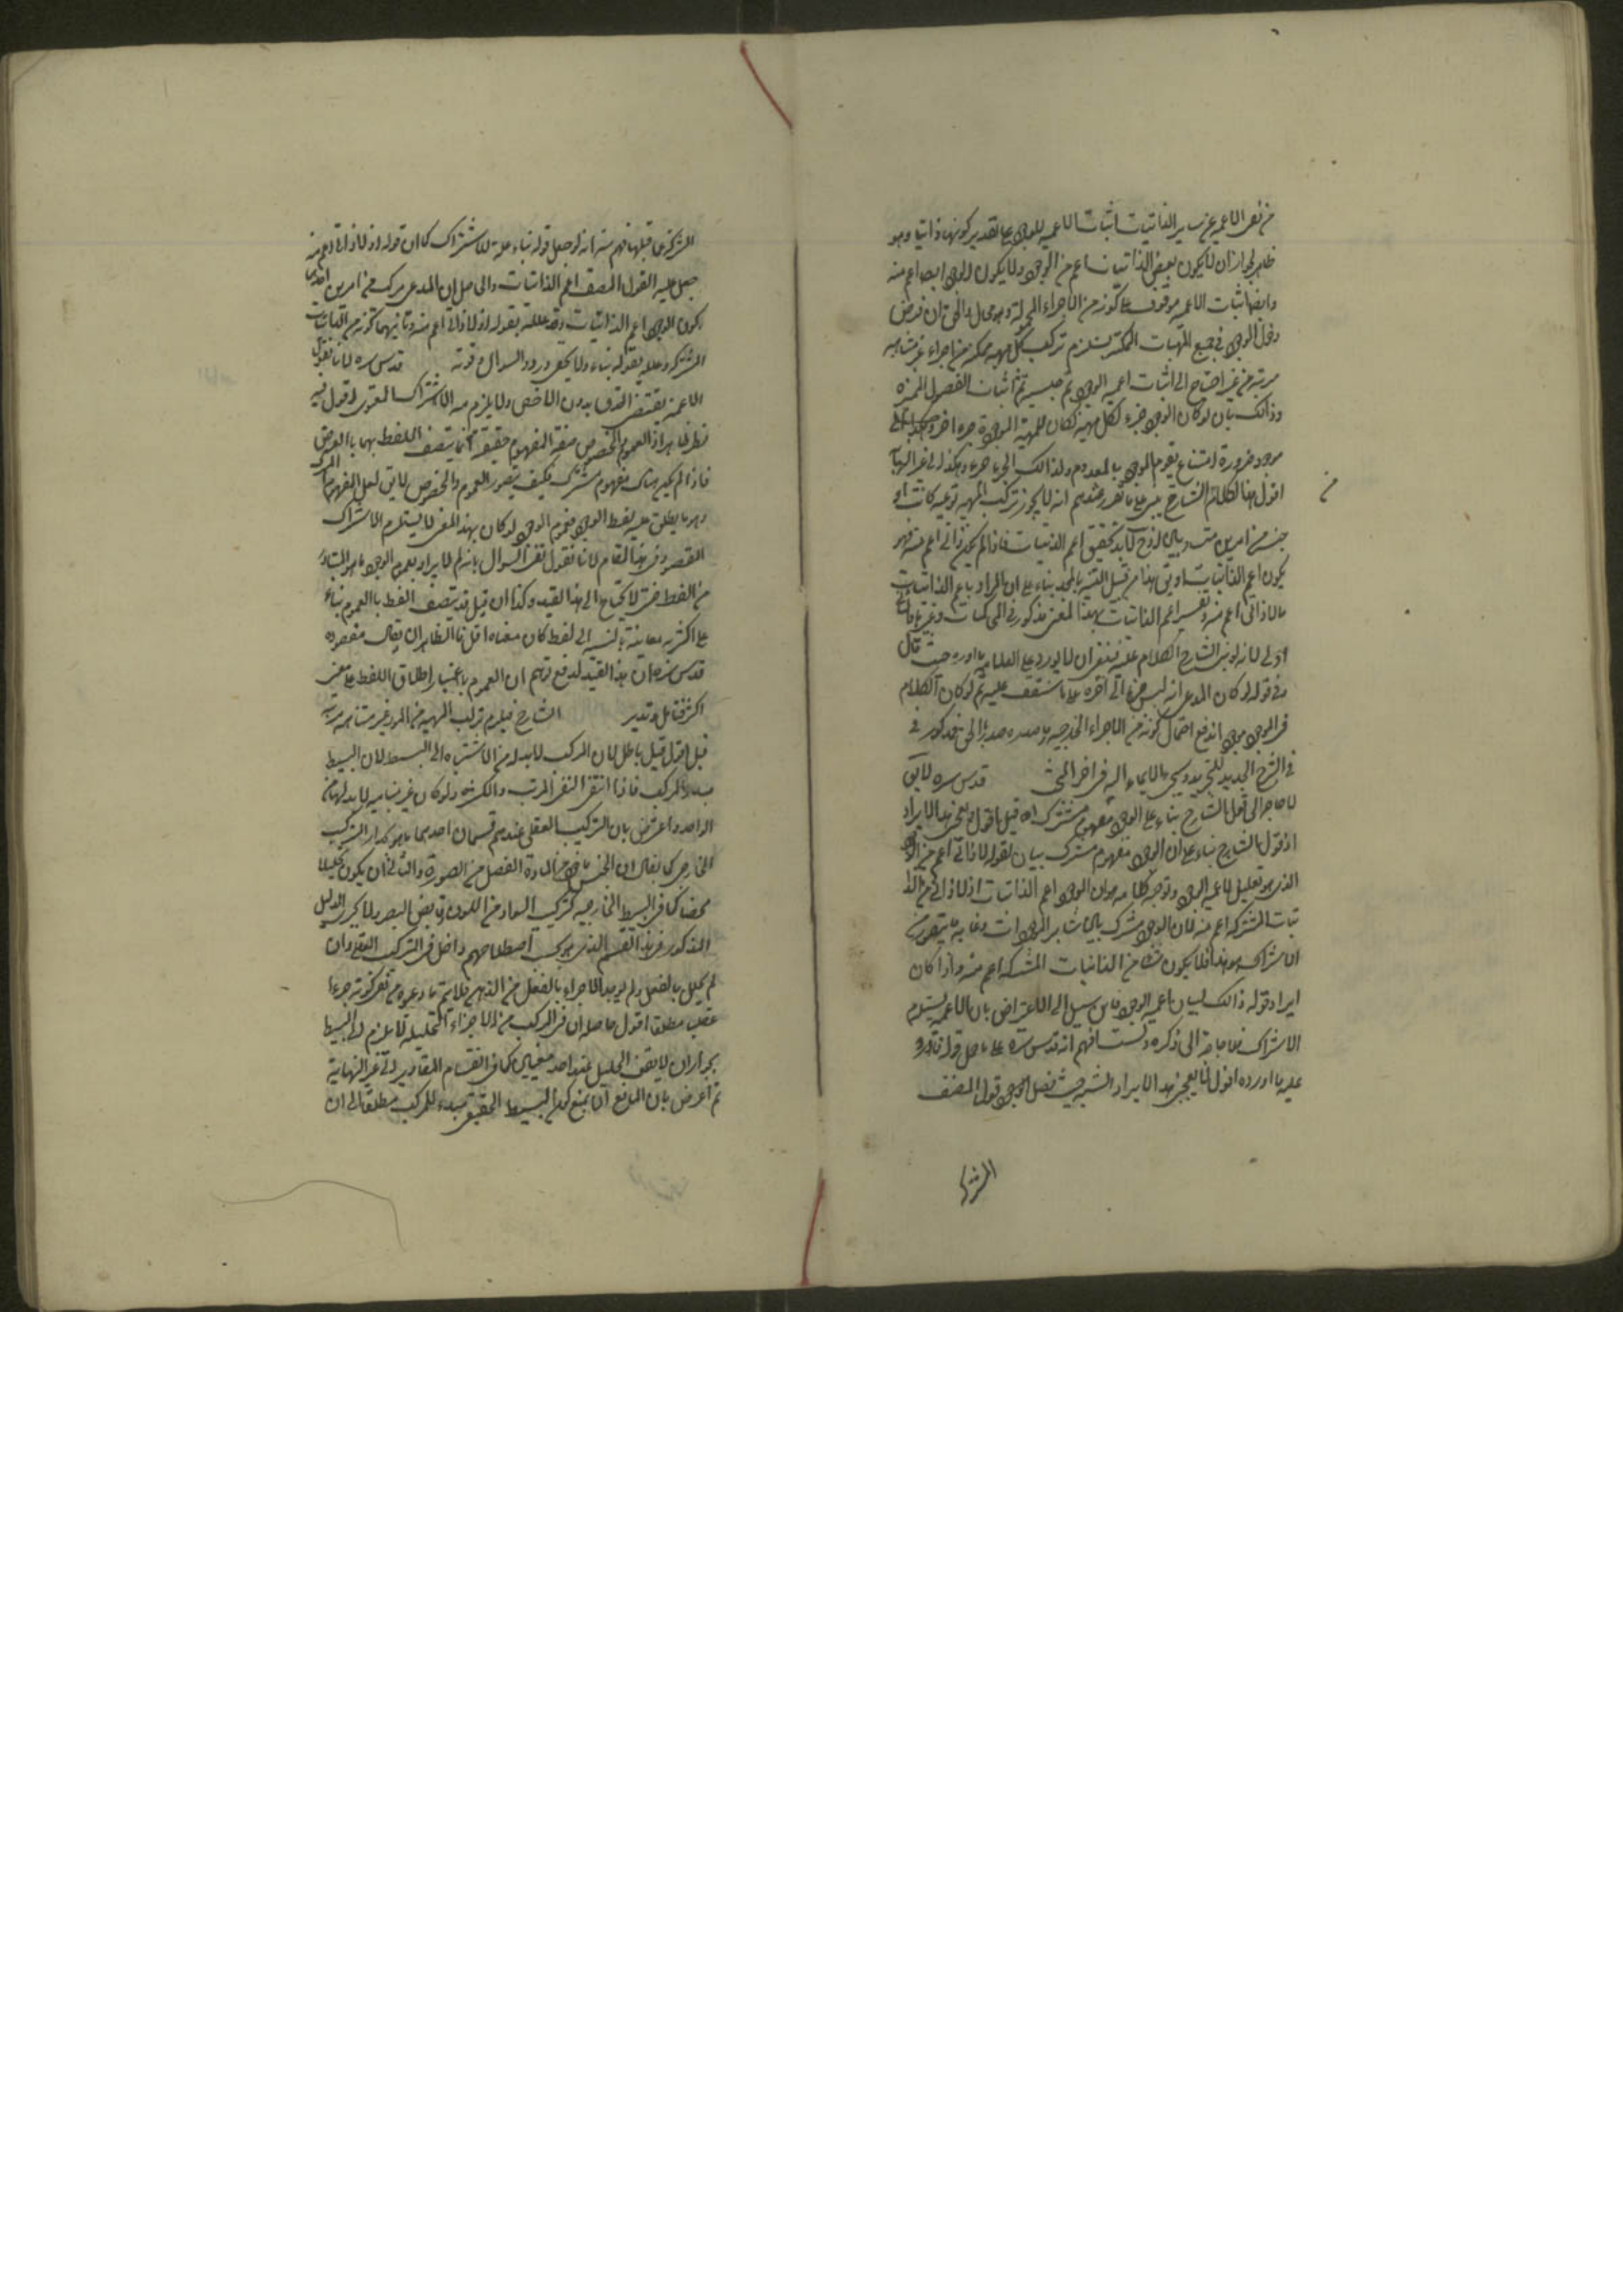 من نفى الاعمية عن ساير الذاتيات اثبات الاعمية للوجود على تقدير كونها ذاتيا وهو
ظاهر لجواز ان لا يكون بعض الذاتيات اعم من الوجود ولا يكون الوجود ايضا اعم منه
وايضا اثبات الاعمية موقوف على كونه من الاجزاء المحمولة وهو محال والحق ان فرض
دخول الوجود في جميع المهيات الممكنة يستلزم تركب كل مهية ممكنة من اجزاء غير متناهية
مرتبة من غير احتياج الى اثبات اعمية الوجود ثم جنسيته ثم اثبات الفصول المميزة
وذالك بان لو كان الوجود جزء لكل مهية لكان للمهية الموجودة جزء اخر
موجود ضرورة امتناع تقوم الموجود بالمعدوم ولذالك الجزء جزء وهكذا الى غير النهاية
اقول هذا الكلام الشارح مبنى على ما تقرر عندهم انه لا يجوز تركب المهية نوعية كانت او
جنسا من امرين متساويين اذ ح لا بد تحقق اعم الذاتيات فاذا لم يكن ذاتى اعم منه فهو
يكون اعم الذاتيات او يق هذا من قبيل بناء على ان المراد باعم الذاتيات
مالا ذاتى اعم منه وتفسير اعم الذاتيات بهذا المعنى مذكور فى المحاكمات وغيرها
اولى لانه لو بنى الشارح الكلام عليه فينبغى ان لا يورد على العلامة ما اورده حيث قال
وفى قوله لو كان المدعى انه ليس جزء الى اخره على ما ستقف عليه ثم لو كان الكلام
فى الموجود اندفع احتمال كونه من الاجزاء الخارجية مذكور فى
فى الشرح الجديد للتجريد وسيجئ الايماء اليه فى اخر البحث قدس سره لا يق
لا حاجة الى قول الشارح بناء على ان الوجود مفهوم مشترك اه قيل اقول منحى هذا الايراد
اذ قول الشارح بناء على ان الوجود مفهوم مشترك بيان لقوله لا ذاتى اعم من الوجود
الذى هو تعليل لاعمية الوجود وتوجيه كلامه هو ان الوجود اعم الذاتيات اذ لا ذاتى من الذا
تيات المشتركة اعم منه لان الوجود مشترك بين سائر الموجودات وغاية ما يتصور من
الاشتراك هو هذا فلا يكون شئ من الذاتيات المشتركة اعم منه واذا كان
ايراد قوله ذالك لبيان اعمية الوجود فاى سبيل الى الاعتراض بان الاعمية يستلزم
الاشتراك فلا حاجة الى ذكره ولست افهم انه قدس سره على ما حمل قوله فاورد
عليه ما اورده اقول هذا الايراد قول المصنف
المشترك
المشترك على قبلها فهم منه انه لو جعل قوله بناء علة للاشتراك كما ان قوله اذ لا ذاتى اعم منه
جعل علة لقول المصنف اعم الذاتيات والحاصل ان المدعى مركب من امرين احدهما
كون الوجود اعم الذاتيات وقد علله بقوله اذ لا ذاتى اعم منه وثانيهما كونه من الذاتيات
المشتركة وعلله بقوله بناء ولا يخفى ورود السوال ح قوته قدس سره لانا نقول
الاعمية تقتضى الصدق بدون الاخص ولا يلزم منه الاشتراك المعنوى اقول فيه
نظر ظاهر اذ العموم والخصوص صفة المفهوم حقيقة انما يتصف اللفظ بهما بالعرض
فاذا لم يكن هناك مفهوم مشترك فكيف يتصور العموم والخصوص لا يق لعل المفهوم المشترك
وهو ما يطلق عليه لفظ الوجود فعموم الوجود لو كان بهذا المعنى لا يستلزم الاشتراك
المقصود فى هذا المقام لانا نقول السوال بانه لم لا يراد بعموم الوجود ما هو المتبادر
من اللفظ حتى لا يحتاج الى هذا لقيد وكذا ان قيل قد يتصف اللفظ بالعموم بناء
على اكثرية معانيه بالنسبة الى لفظ كان معناه اقل الظاهر ان يقال مقصوده
قدس سره ان هذا القيد لدفع توهم ان العموم باعتبار اطلاق اللفظ على معنى
اكثر فتامل وتدبر الشارح فيلزم تركب المهية من امور غير متناهية مرتبة
قيل اقول قيل باطل لان المركب لابد له من الانتهاء الى البسيط لان البسيط
مبداء المركب فاذا انتفى انتفى المركب والكثرة ولو كان غير متناهية لابد لها من
الواحد واعترض بان التركيب العقلى عندهم قسمان احدهما ما هو بازاء التركيب
الخارجى كما يقال ان الجنس ماخوذ من المادة والفصل من الصورة والثانى ان يكون تحليليا
محضا كما فى البسيط الخارجية كتركيب السواد من اللون وقابض البصر ولا يجرى الدليل
المذكور فى هذا القسم الذى بحسب اصطلاحهم داخل فى التركيب العقلى وان
لم يحلل بالفعل ولم يوجد الاجزاء بالفعل فى الذهن فلا يتم ما ادعوه من نفى كونه جزءا
عقليا مطلقا اقول حاصله ان فى المركب من الاجزاء التحليلية لا يلزم البسيط
بجواز ان لا يقف التحليل عند حد معين كما فى انقسام المقادير الى غير النهاية
ثم اعترض بان المانع ان يمنع كون البسيط الحقيقى مبدء للمركب مطلقا الى ان